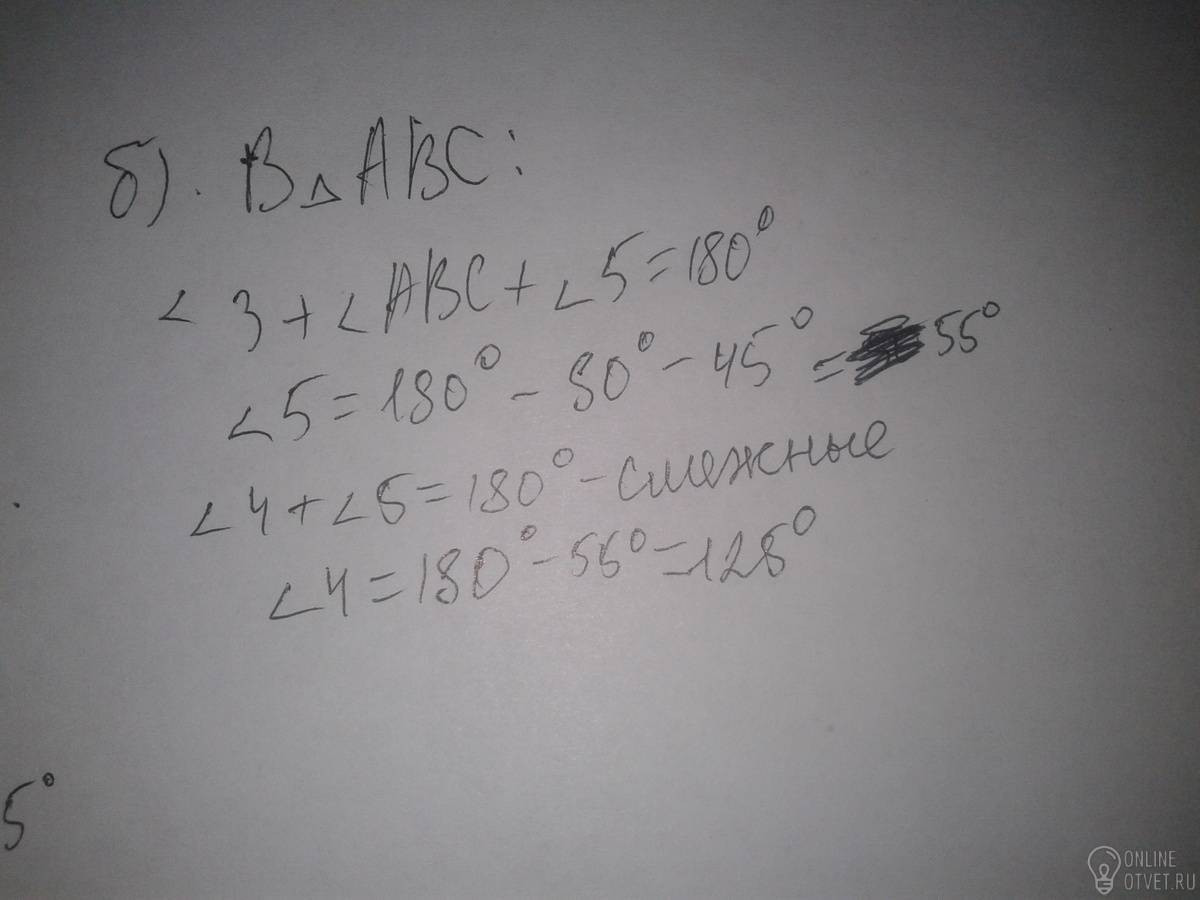 б). В △ ABC:
∠3 + ∠ABC + ∠5 = 180°
∠5 = 180° - 80° - 45° = 55°
∠4 + ∠5 = 180° - смежные
∠4 = 180° - 55° = 125°
5°
ONLINE
OTVET.RU